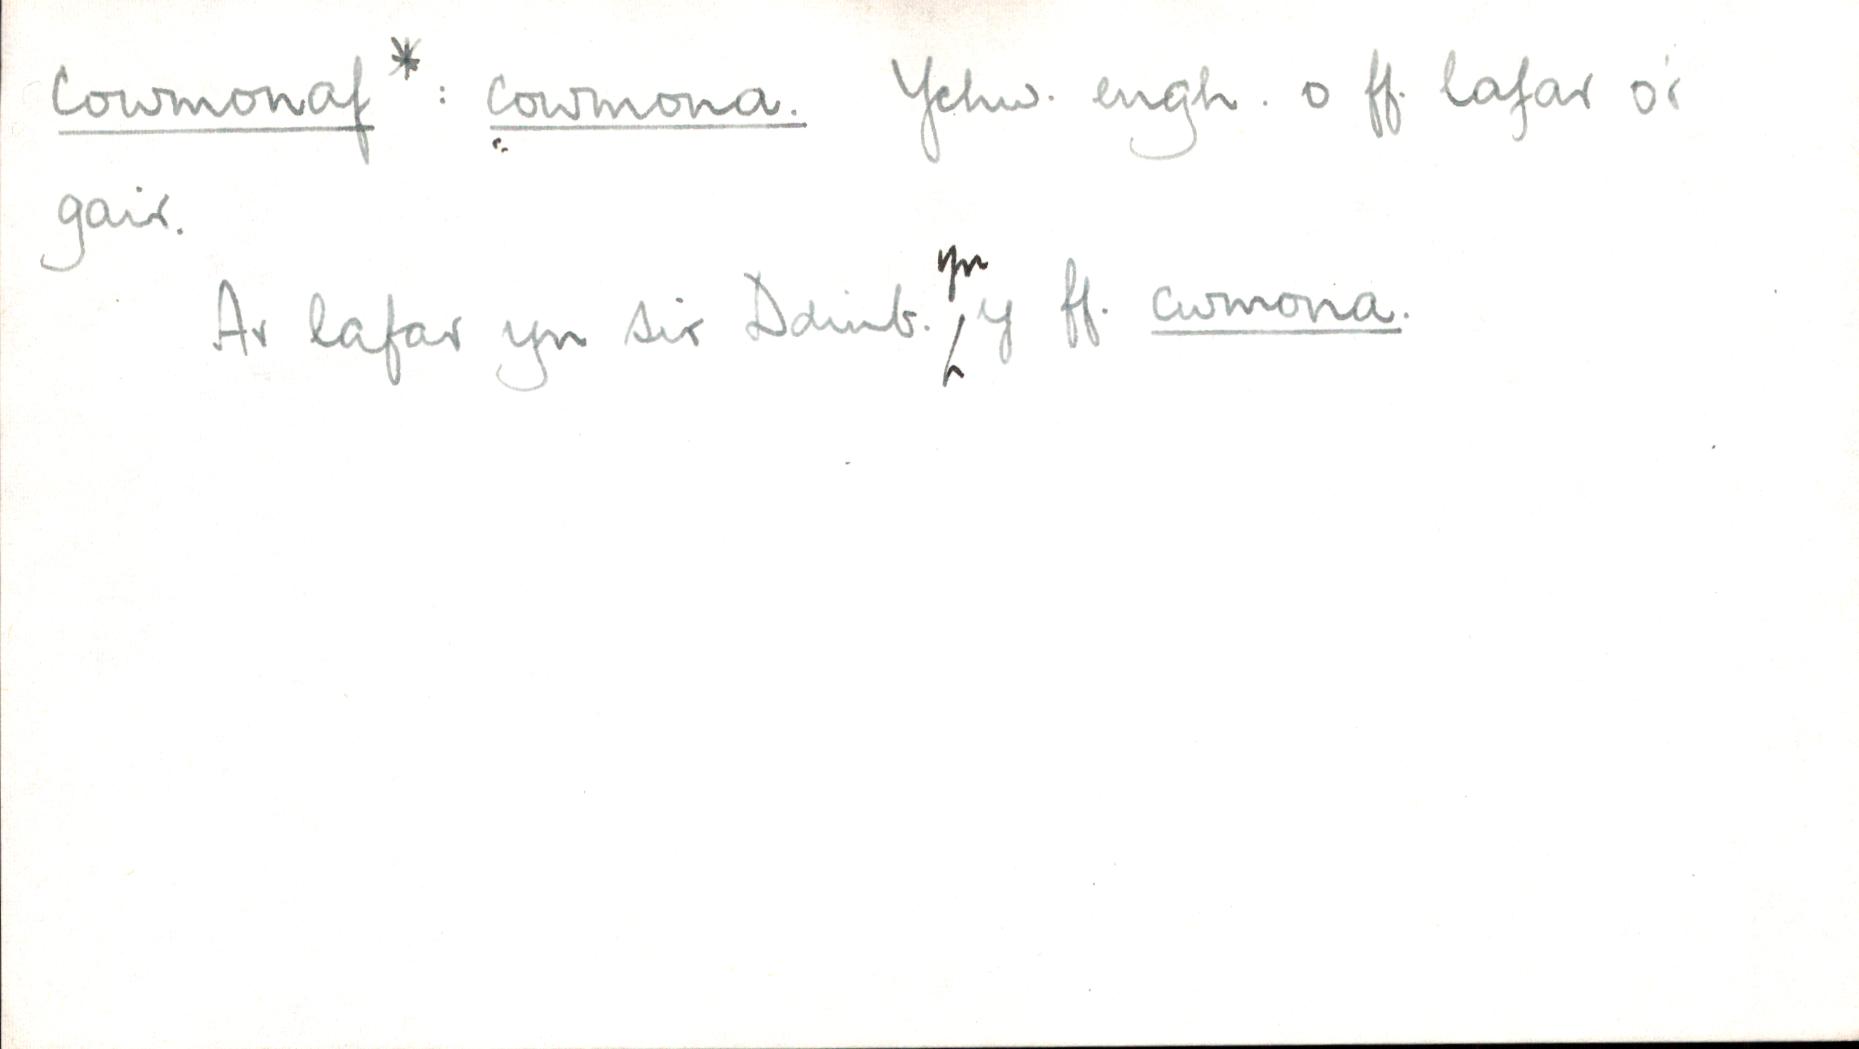 Cowmonaf*: cowmona. Ychw. engh. o ff. lafar o'r
gair.
Ar lafar yn sir Ddinb. yn y ff. cwmona.